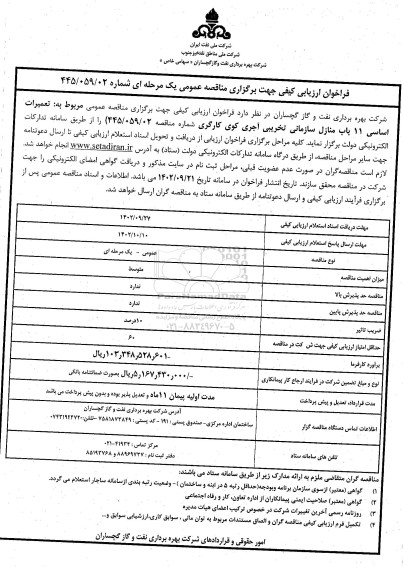 شرکت ملی نفت ایران
شرکت ملی مناطق نفتخیز جنوب
شرکت بهره برداری نفت و گاز گچساران « سهامی خاص »
فراخوان ارزیابی کیفی جهت برگزاری مناقصه عمومی یک مرحله ای شماره ۴۴۵/۰۵۹/۰۲
شرکت بهره برداری نفت و گاز گچساران در نظر دارد فراخوان ارزیابی کیفی جهت برگزاری مناقصه عمومی مربوط به: تعمیرات
اساسی ۱۱ باب منازل سازمانی تخریبی آجری کوی کارگری شماره مناقصه ۴۴۵/۰۵۹/۰۲) را از طریق سامانه تدارکات
الکترونیکی دولت برگزار نماید. کلیه مراحل برگزاری فراخوان ارزیابی از دریافت و تحویل اسناد استعلام ارزیابی کیفی تا ارسال دعوتنامه
جهت سایر مراحل مناقصه، از طریق درگاه سامانه تدارکات الکترونیکی دولت (ستاد) به آدرس www.setadiran.ir انجام خواهد شد.
لازم است مناقصه‌گران در صورت عدم عضویت قبلی، مراحل ثبت نام در سایت مذکور و دریافت گواهی امضای الکترونیکی را جهت
شرکت در مناقصه محقق سازند. تاریخ انتشار فراخوان در سامانه تاریخ ۱۴۰۲/۰۹/۲۱ می باشد. اطلاعات و اسناد مناقصه عمومی پس از
برگزاری فرآیند ارزیابی کیفی و ارسال دعوتنامه از طریق سامانه ستاد به مناقصه گران ارسال خواهد شد.
مهلت دریافت اسناد استعلام ارزیابی کیفی ۱۴۰۲/۰۹/۲۷
مهلت ارسال پاسخ استعلام ارزیابی کیفی ۱۴۰۲/۱۰/۱۰
نوع مناقصه عمومی - یک مرحله ای
میزان اهمیت مناقصه متوسط
مناقصه حد پذیرش بالا ندارد
مناقصه حد پذیرش پایین ندارد
ضریب تاثیر ۱۰درصد
حداقل امتیاز ارزیابی کیفی جهت ش کت در مناقصه ۶۰
برآورد کارفرما ۱۰۳٫۳۴۸٫۵۲۸٫۶۰۱ریال
نوع و مبلغ تضمین شرکت در فرآیند ارجاع کار پیمانکاری ۵٫۱۶۷٫۴۳۰٫۰۰۰/- ریال بصورت ضمانتنامه بانکی
مدت قرارداد، تعدیل و پیش پرداخت مدت اولیه پیمان ۱۱ماه و تعدیل پذیر بوده و بدون پیش پرداخت می باشد
اطلاعات تماس دستگاه مناقصه گزار آدرس شرکت بهره برداری نفت و گاز گچساران
ساختمان اداره مرکزی- صندوق پستی: ۱۹۱ - کد پستی: ۷۵۸۱۸۷۳۸۴۹ -تلفن:
تلفن های سامانه ستاد مرکز تماس: ۴۱۹۳۴-۰۲۱
دفتر ثبت نام: ۸۸۹۶۹۷۳۷ و ۸۵۱۹۳۷۶۸
مناقصه گران متقاضی ملزم به ارائه مدارک زیر از طریق سامانه ستاد می باشند:
۱) گواهی (معتبر) ازسوی سازمان برنامه وبودجه(حداقل رتبه ۵ در ابنه و ساختمان )– وضعیت رتبه بندی ازسامانه ساجار استعلام می گردد.
۲) گواهی (معتبر) صلاحیت ایمنی پیمانکاران از اداره تعاون، کار و رفاه اجتماعی
۳) روزنامه رسمی آخرین تغییرات شرکت در خصوص ترکیب اعضای هیات مدیره
۴) تکمیل فرم ارزیابی کیفی مناقصه گران و الصاق مستندات مربوط به توان مالی ، سوابق کاری،ارزشیابی سوابق و...
امور حقوقی و قراردادهای شرکت بهره برداری نفت و گاز گچساران